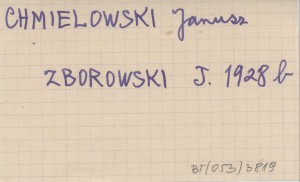 CHMIELOWSKI Janusz
ZBOROWSKI J. 1928 b
BT/053/3819